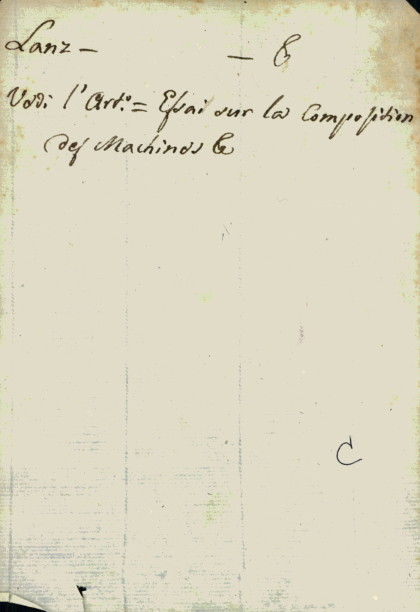 Lanz — — &
Vedi l'Art.º = Eſsai sur la Compoſition
deſ Machines &
C